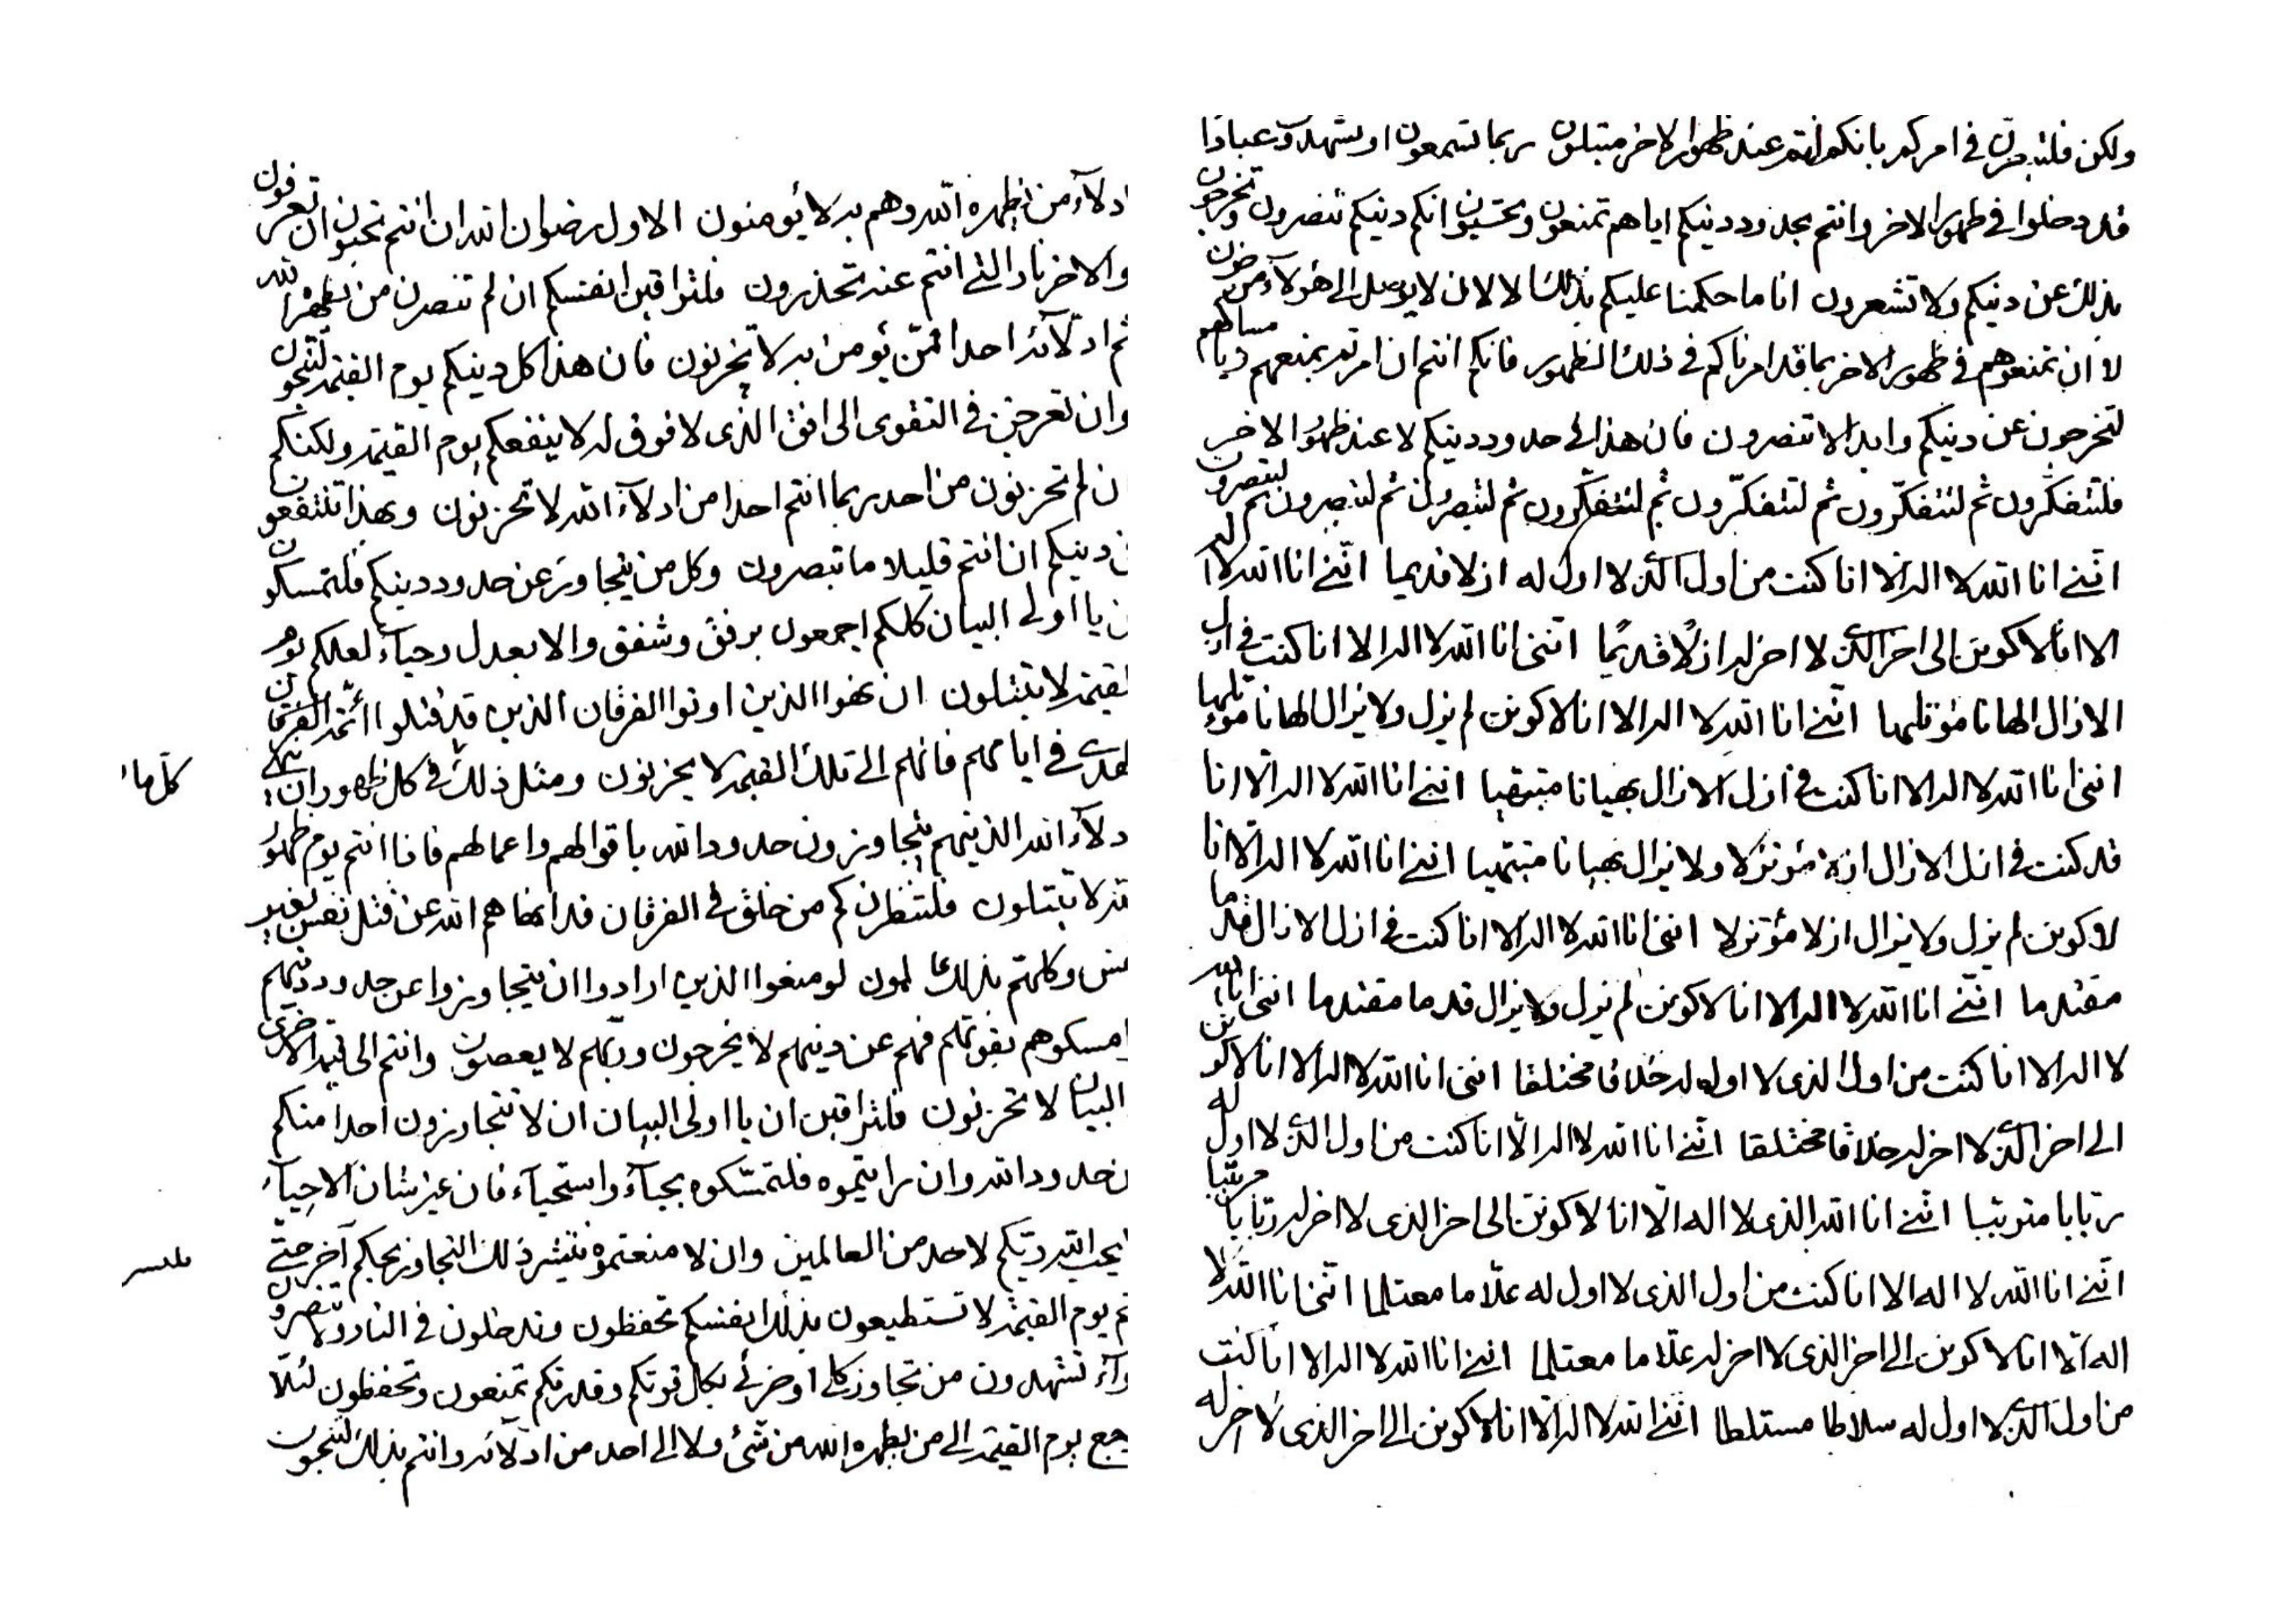 ولكن فلتبصرن في امركم بانكم انتم عند ظهور الاخر مبتلون ربما تسمعون او تشهدون عبادا
قد دخلوا في ظهور الاخر وانتم بحدود دينكم اياهم تمنعون وتحسبون انكم دينكم تنصرون وتخرجون
بذلك عن دينكم ولا تشعرون انا ما حكمنا عليكم بذلك الا لان لا يوصل الى هؤلاء من حزن
لا ان تمنعوهم في ظهور الاخر بما قد امرناكم في ذلك الظهور فانكم انتم ان امرتم بمنعهم
لتخرجون عن دينكم وابدا لا تنصرون فان هذا الى حدود دينكم لا عند ظهور الاخر
فلتتفكرون ثم لتتفكرون ثم لتتفكرون ثم لتتفكرون ثم لتبصرون ثم لتبصرون ثم لتبصرون
انني انا الله لا اله الا انا كنت من اول الذي لا اول له ازلا قديما انني انا الله لا اله
الا انا لاكونن الى اخر الذي لا اخر له ازلا قديما انني انا الله لا اله الا انا كنت في ازل
الازال الهانا مؤتلها انني انا الله لا اله الا انا لاكونن لم يزل ولا يزال الهانا مؤتلها
انني انا الله لا اله الا انا كنت في ازل الازال بهيانا مبتهيا انني انا الله لا اله الا انا
قد كنت في ازل الازال ازلا مؤتزلا ولا يزال بهيانا مبتهيا انني انا الله لا اله الا انا
لاكونن لم يزل ولا يزال ازلا مؤتزلا انني انا الله لا اله الا انا كنت في ازل الازال قدما
مقتدما انني انا الله لا اله الا انا لاكونن لم يزل ولا يزال قدما مقتدما انني انا الله
لا اله الا انا كنت من اول الذي لا اول له خلاقا مختلقا انني انا الله لا اله الا انا لاكونن
الى اخر الذي لا اخر له خلاقا مختلقا انني انا الله لا اله الا انا كنت من اول الذي لا اول له
ربابا مرتببا انني انا الله الذي لا اله الا انا لاكونن الى اخر الذي لا اخر له ربابا مرتببا
انني انا الله لا اله الا انا كنت من اول الذي لا اول له علاما معتلما انني انا الله لا
اله الا انا لاكونن الى اخر الذي لا اخر له علاما معتلما انني انا الله لا اله الا انا كنت
من اول الذي لا اول له سلاطا مستلطا انني الله لا اله الا انا لاكونن الى اخر الذي لا اخر له
ادلاء من يظهره الله وهم به لا يؤمنون الاول رضوان الله ان انتم تحبون ان تعرفون
والاخر نار التي انتم عنه تحذرون فلتراقبن انفسكم ان لم تنصرن من يظهره الله
ثم ادلائه احدا ممن يؤمن به لا تحزنون فان هذا كل دينكم يوم القيمة لتنجون
وان تعرجن في التقوى الى افق الذي لا فوق له لا ينفعكم يوم القيمة ولكنكم
ان لم تحزنون من احد ربما انتم احدا من ادلاء الله لا تحزنون وبهذا تنتفعون
دينكم ان انتم قليلا ما تبصرون وكل من يتجاوز عن حدود دينكم فلتمسكون
ان يا اولي البيان كلكم اجمعون برفق وشفق والا بعدل وحياء لعلكم يوم
القيمة لا تبتلون ان نهوا الذين اوتوا الفرقان الذين قد قتلوا ائمة الفرقان
الهدى في ايامهم فانهم الى تلك القيمة لا يحزنون ومثل ذلك في كل ظهور ان
كل ما
ادلاء الله الذينهم يتجاوزون حدود الله باقوالهم واعمالهم فاذا انتم يوم ظهور
الله لا تبتلون فلتنظرن كم من خلق في الفرقان قد انهاهم الله عن قتل نفس بغير
نفس وكلهم بذلك عالمون لو منعوا الذين ارادوا ان يتجاوزوا عن حدود دينهم
امسكوهم بقوتهم فهم عن دينهم لا يخرجون وربهم لا يعصون وانتم الى قيمة الاخرى
البيان لا تحزنون فلتراقبن ان يا اولي البيان ان لا تتجاوزون احدا منكم
من حدود الله وان رايتموه فلتمسكوه بحياء واستحياء فان عز شان الاحياء
يحب الله ربكم لاحد من العالمين وان لا منعتموه ينتشر ذلك التجاوز بحبكم اخر حتى
يوم القيمة لا تستطيعون بذلك انفسكم تحفظون وتدخلون في النار ولا تنصرون
تشهدون من تجاوز كلي او جزئي بكل قوتكم وقدرتكم تمنعون وتحفظون لئلا
يرجع يوم القيمة الى من يظهره الله من شئ ولا الى احد من ادلائه وانتم بذلك لتنجون